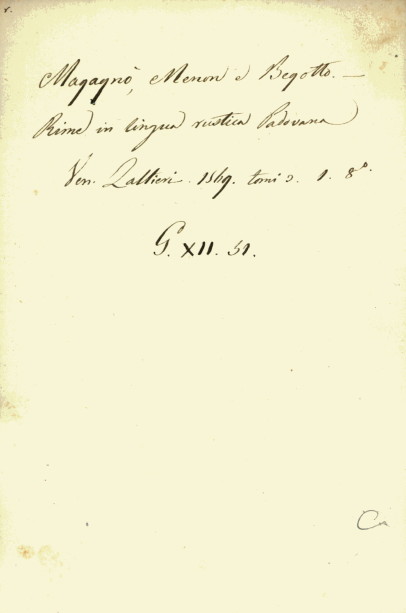 Magagnò, Menon e Begotto. —
Rime in lingua rustica Padovana
Ven. Zaltieri. 1569. tomi 3. 1. 8°.
G. XII. 51.
Ca